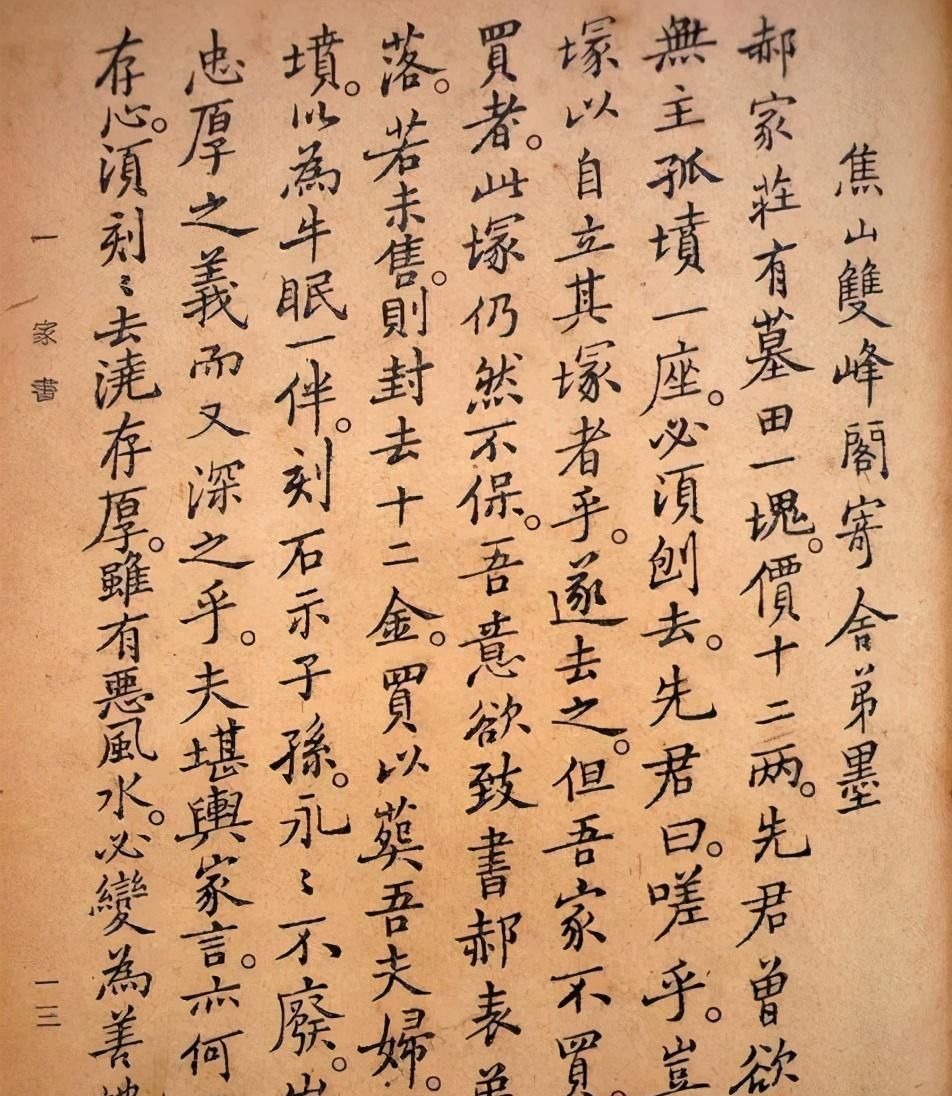 焦山雙峰閣寄舍弟墨
郝家莊有墓田一塊。價十二兩。先君曾欲
無主孤墳一座。必須刨去。先君曰。嗟乎。豈
塚以自立其塚者乎。遂去之。但吾家不買。
買者。此塚仍然不保。吾意欲致書郝表弟
落。若未售。則封去十二金。買以葬吾夫婦。
墳。以為牛眠一伴。刻石示子孫。永〻不廢。
忠厚之義而又深之乎。夫堪輿家言。亦何
存心。須刻〻去澆存厚。雖有惡風水。必變為善
一 家書 一三